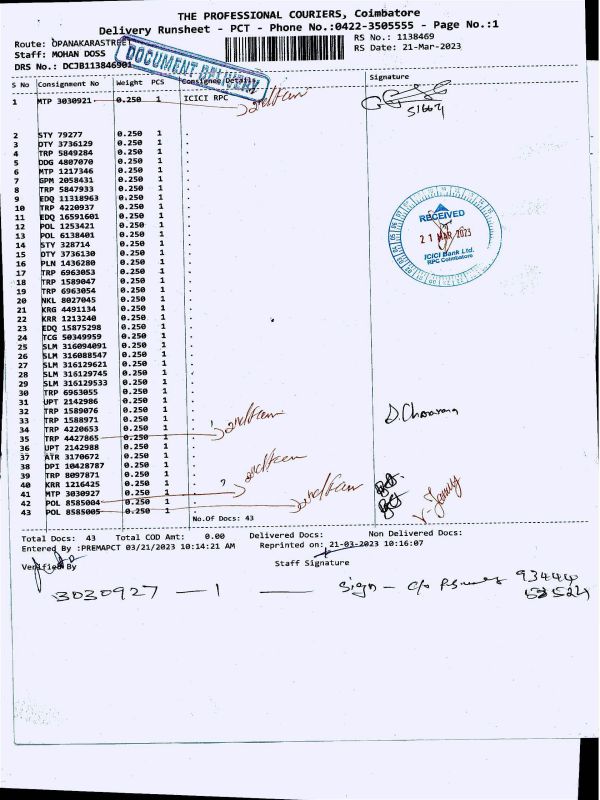 THE PROFESSIONAL COURIERS, Coimbatore
Delivery Runsheet - PCT - Phone No.:0422-3505555 - Page No.:1
Route: OPANAKARASTREET
RS No.: 1138469
Staff: MOHAN DOSS
RS Date: 21-Mar-2023
DRS No.: DCJB113846901
DOCUMENT DELIVERY
S No Consignment No Weight PCS Consignee/Details Signature
1 MTP 3030921 0.250 1 ICICI RPC
2 STY 79277 0.250 1 .
3 DTY 3736129 0.250 1 .
4 TRP 5849284 0.250 1 .
5 DDG 4807070 0.250 1 .
6 MTP 1217346 0.250 1 .
7 GPM 2058431 0.250 1 .
8 TRP 5847933 0.250 1 .
9 EDQ 11318963 0.250 1 .
10 TRP 4220937 0.250 1 .
11 EDQ 16591601 0.250 1 .
12 POL 1253421 0.250 1 .
13 POL 6138401 0.250 1 .
14 STY 328714 0.250 1 .
15 DTY 3736130 0.250 1 .
16 PLN 1436280 0.250 1 .
17 TRP 6963053 0.250 1 .
18 TRP 1589047 0.250 1 .
19 TRP 6963054 0.250 1 .
20 NKL 8027045 0.250 1 .
21 KRG 4491134 0.250 1 .
22 KRR 1213240 0.250 1 .
23 EDQ 15875298 0.250 1 .
24 TCG 50349959 0.250 1 .
25 SLM 316094091 0.250 1 .
26 SLM 316088547 0.250 1 .
27 SLM 316129621 0.250 1 .
28 SLM 316129745 0.250 1 .
29 SLM 316129533 0.250 1 .
30 TRP 6963055 0.250 1 .
31 UPT 2142986 0.250 1 .
32 TRP 1589076 0.250 1 .
33 TRP 1588971 0.250 1 .
34 TRP 4220653 0.250 1 .
35 TRP 4427865 0.250 1 .
36 UPT 2142988 0.250 1 .
37 ATR 3170672 0.250 1 .
38 DPI 10428787 0.250 1 .
39 TRP 8097871 0.250 1 .
40 KRR 1216425 0.250 1 .
41 MTP 3030927 0.250 1 .
42 POL 8585004 0.250 1 .
43 POL 8585005 0.250 1 .
RECEIVED
21 MAR 2023
ICICI Bank Ltd.
RPC Coimbatore
No.Of Docs: 43
Total Docs: 43 Total COD Amt: 0.00 Delivered Docs: Non Delivered Docs:
Entered By :PREMAPCT 03/21/2023 10:14:21 AM Reprinted on: 21-03-2023 10:16:07
Verified By
Staff Signature
3030927 — 1 — Sign - c/o